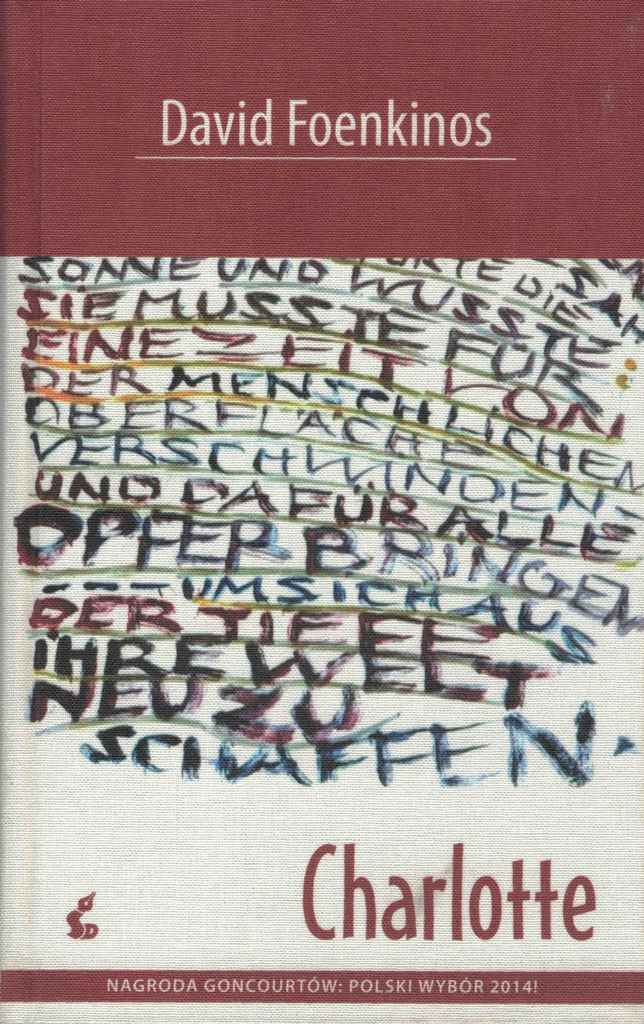 David Foenkinos
SONNE UND WUSSTE DIE
SIE MUSSTE FÜR
EINE ZEIT VON
DER MENSCHLICHEN
OBERFLÄCHE
VERSCHWINDEN
UND DAFÜR ALLE
OPFER BRINGEN
UM SICH AUS
DER TIEFE
IHRE WELT
NEU ZU
SCHAFFEN.
Charlotte
SD
NAGRODA GONCOURTÓW: POLSKI WYBÓR 2014!